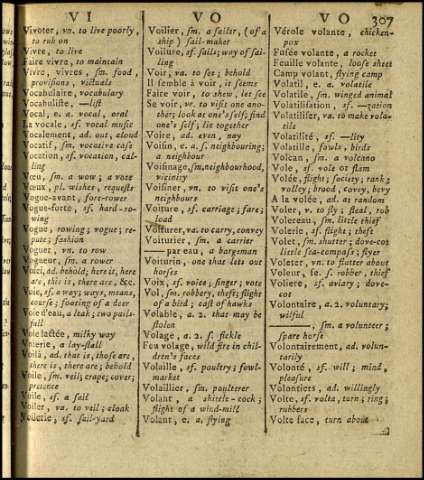 VI
VO
VO
307
Vivoter, vn. to live poorly,
to rub on
Vivre, to live
Faire vivre, to maintain
Vivre, vivres, sm. food,
provisions, victuals
Vocabulaire, vocabulary
Vocabuliste, —list
Vocal, e. a. vocal, oral
La vocale, sf. vocal music
Vocalement, ad. out, aloud
Vocatif, sm. vocative case
Vocation, sf. vocation, cal-
ling
Vœu, sm. a vow; a vote
Vœux, pl. wishes, requests
Vogue-avant, fore-rower
Vogue-forte, sf. hard-ro-
wing
Vogue, rowing; vogue; re-
pute; fashion
Voguer, vn. to row
Vogueur, sm. a rower
Voici, ad. behold; here is, here
are, this is, there are, &c.
Voie, sf. a way; ways, means,
course; footing of a deer
Voie d'eau, a leak; two pails-
full
Voie lactée, milky way
Voierie, a lay-stall
Voilà, ad. that is, those are,
there is, there are; behold
Voile, sm. veil; crape; cover;
presence
Voile, sf. a sail
Voiler, va. to veil; cloak
Voilerie, sf. sail-yard
Voilier, sm. a sailer, (of a
ship) sail-maker
Voilure, sf. sails; way of sail-
ing
Voir, va. to see; behold
Il semble à voir, it seems
Faire voir, to shew, let see
Se voir, vr. to visit one ano-
ther; look at one's self; find
one's self; lie together
Voire, ad. even, nay
Voisin, e. a. s. neighbouring;
a neighbour
Voisinage, sm. neighbourhood,
vicinity
Voisiner, vn. to visit one's
neighbours
Voiture, sf. carriage; fare;
load
Voiturer, va. to carry, convey
Voiturier, sm. a carrier
— par eau, a bargeman
Voiturin, one that lets out
horses
Voix, sf. voice; singer; vote
Vol, sm. robbery, theft; flight
of a bird; cast of hawks
Volable, a. 2. that may be
stolen
Volage, a. 2. s. fickle
Feu volage, wild fire in chil-
dren's faces
Volaille, sf. poultry; fowl-
market
Volaillier, sm. poulterer
Volant, a shittle-cock;
flight of a wind-mill
Volant; e. a. flying
Vérole volante, chicken-
pox
Fusée volante, a rocket
Feuille volante, loose sheet
Camp volant, flying camp
Volatil, e. a. volatile
Volatile, sm. winged animal
Volatilisation, sf. —zation
Volatiliser, va. to make vola-
tile
Volatilité, sf. —lity
Volatille, fowls, birds
Volcan, sm. a volcano
Vole, sf. vole or flam
Volée, flight; society; rank;
volley; brood, covey, bevy
A la volée, ad. at random
Voler, v. to fly; steal, rob
Volereau, sm. little thief
Volerie, sf. flight; theft
Volet, sm. shutter; dove-cot
little sea-compass; flyer
Voleter, vn. to flutter about
Voleur, se. s. robber, thief
Voliere, sf. aviary; dove-
cot
Volontaire, a. 2. voluntary;
wilful
———, sm. a volunteer;
spare horse
Volontairement, ad. volun-
tarily
Volonté, sf. will; mind,
pleasure
Volontiers, ad. willingly
Volte, sf. volta, turn; ring;
rubbers
Volte face, turn about